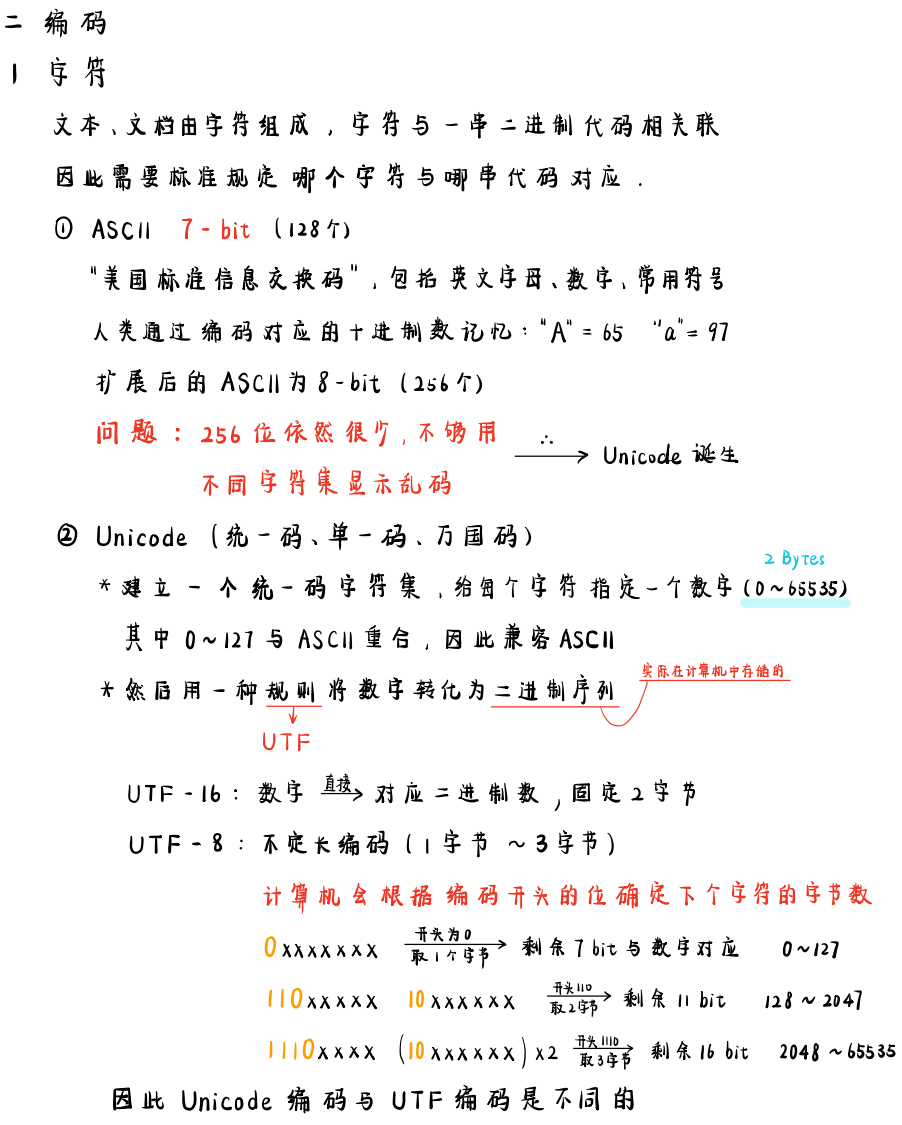 二 编码
1 字符
文本、文档由字符组成，字符与一串二进制代码相关联
因此需要标准规定哪个字符与哪串代码对应.
① ASCII 7-bit (128个)
"美国标准信息交换码"，包括英文字母、数字、常用符号
人类通过编码对应的十进制数记忆："A" = 65 "a" = 97
扩展后的 ASCII为 8-bit (256个)
问题：256位依然很少，不够用
不同字符集显示乱码
∴
→ Unicode 诞生
② Unicode (统一码、单一码、万国码)
2 Bytes
* 建立一个统一码字符集，给每个字符指定一个数字(0~65535)
其中 0~127 与 ASCII 重合，因此兼容ASCII
实际在计算机中存储的
* 然后用一种规则将数字转化为二进制序列
UTF
UTF-16：数字 直接→ 对应二进制数，固定2字节
UTF-8：不定长编码 (1字节 ~3字节)
计算机会根据编码开头的位确定下个字符的字节数
0xxxxxxx 开头为0 取1个字节→ 剩余 7 bit 与数字对应 0~127
110xxxxx 10xxxxxx 开头110 取2字节→ 剩余 11 bit 128~2047
1110xxxx (10xxxxxx)x2 开头1110 取3字节→ 剩余16 bit 2048~65535
因此 Unicode 编码与 UTF 编码是不同的